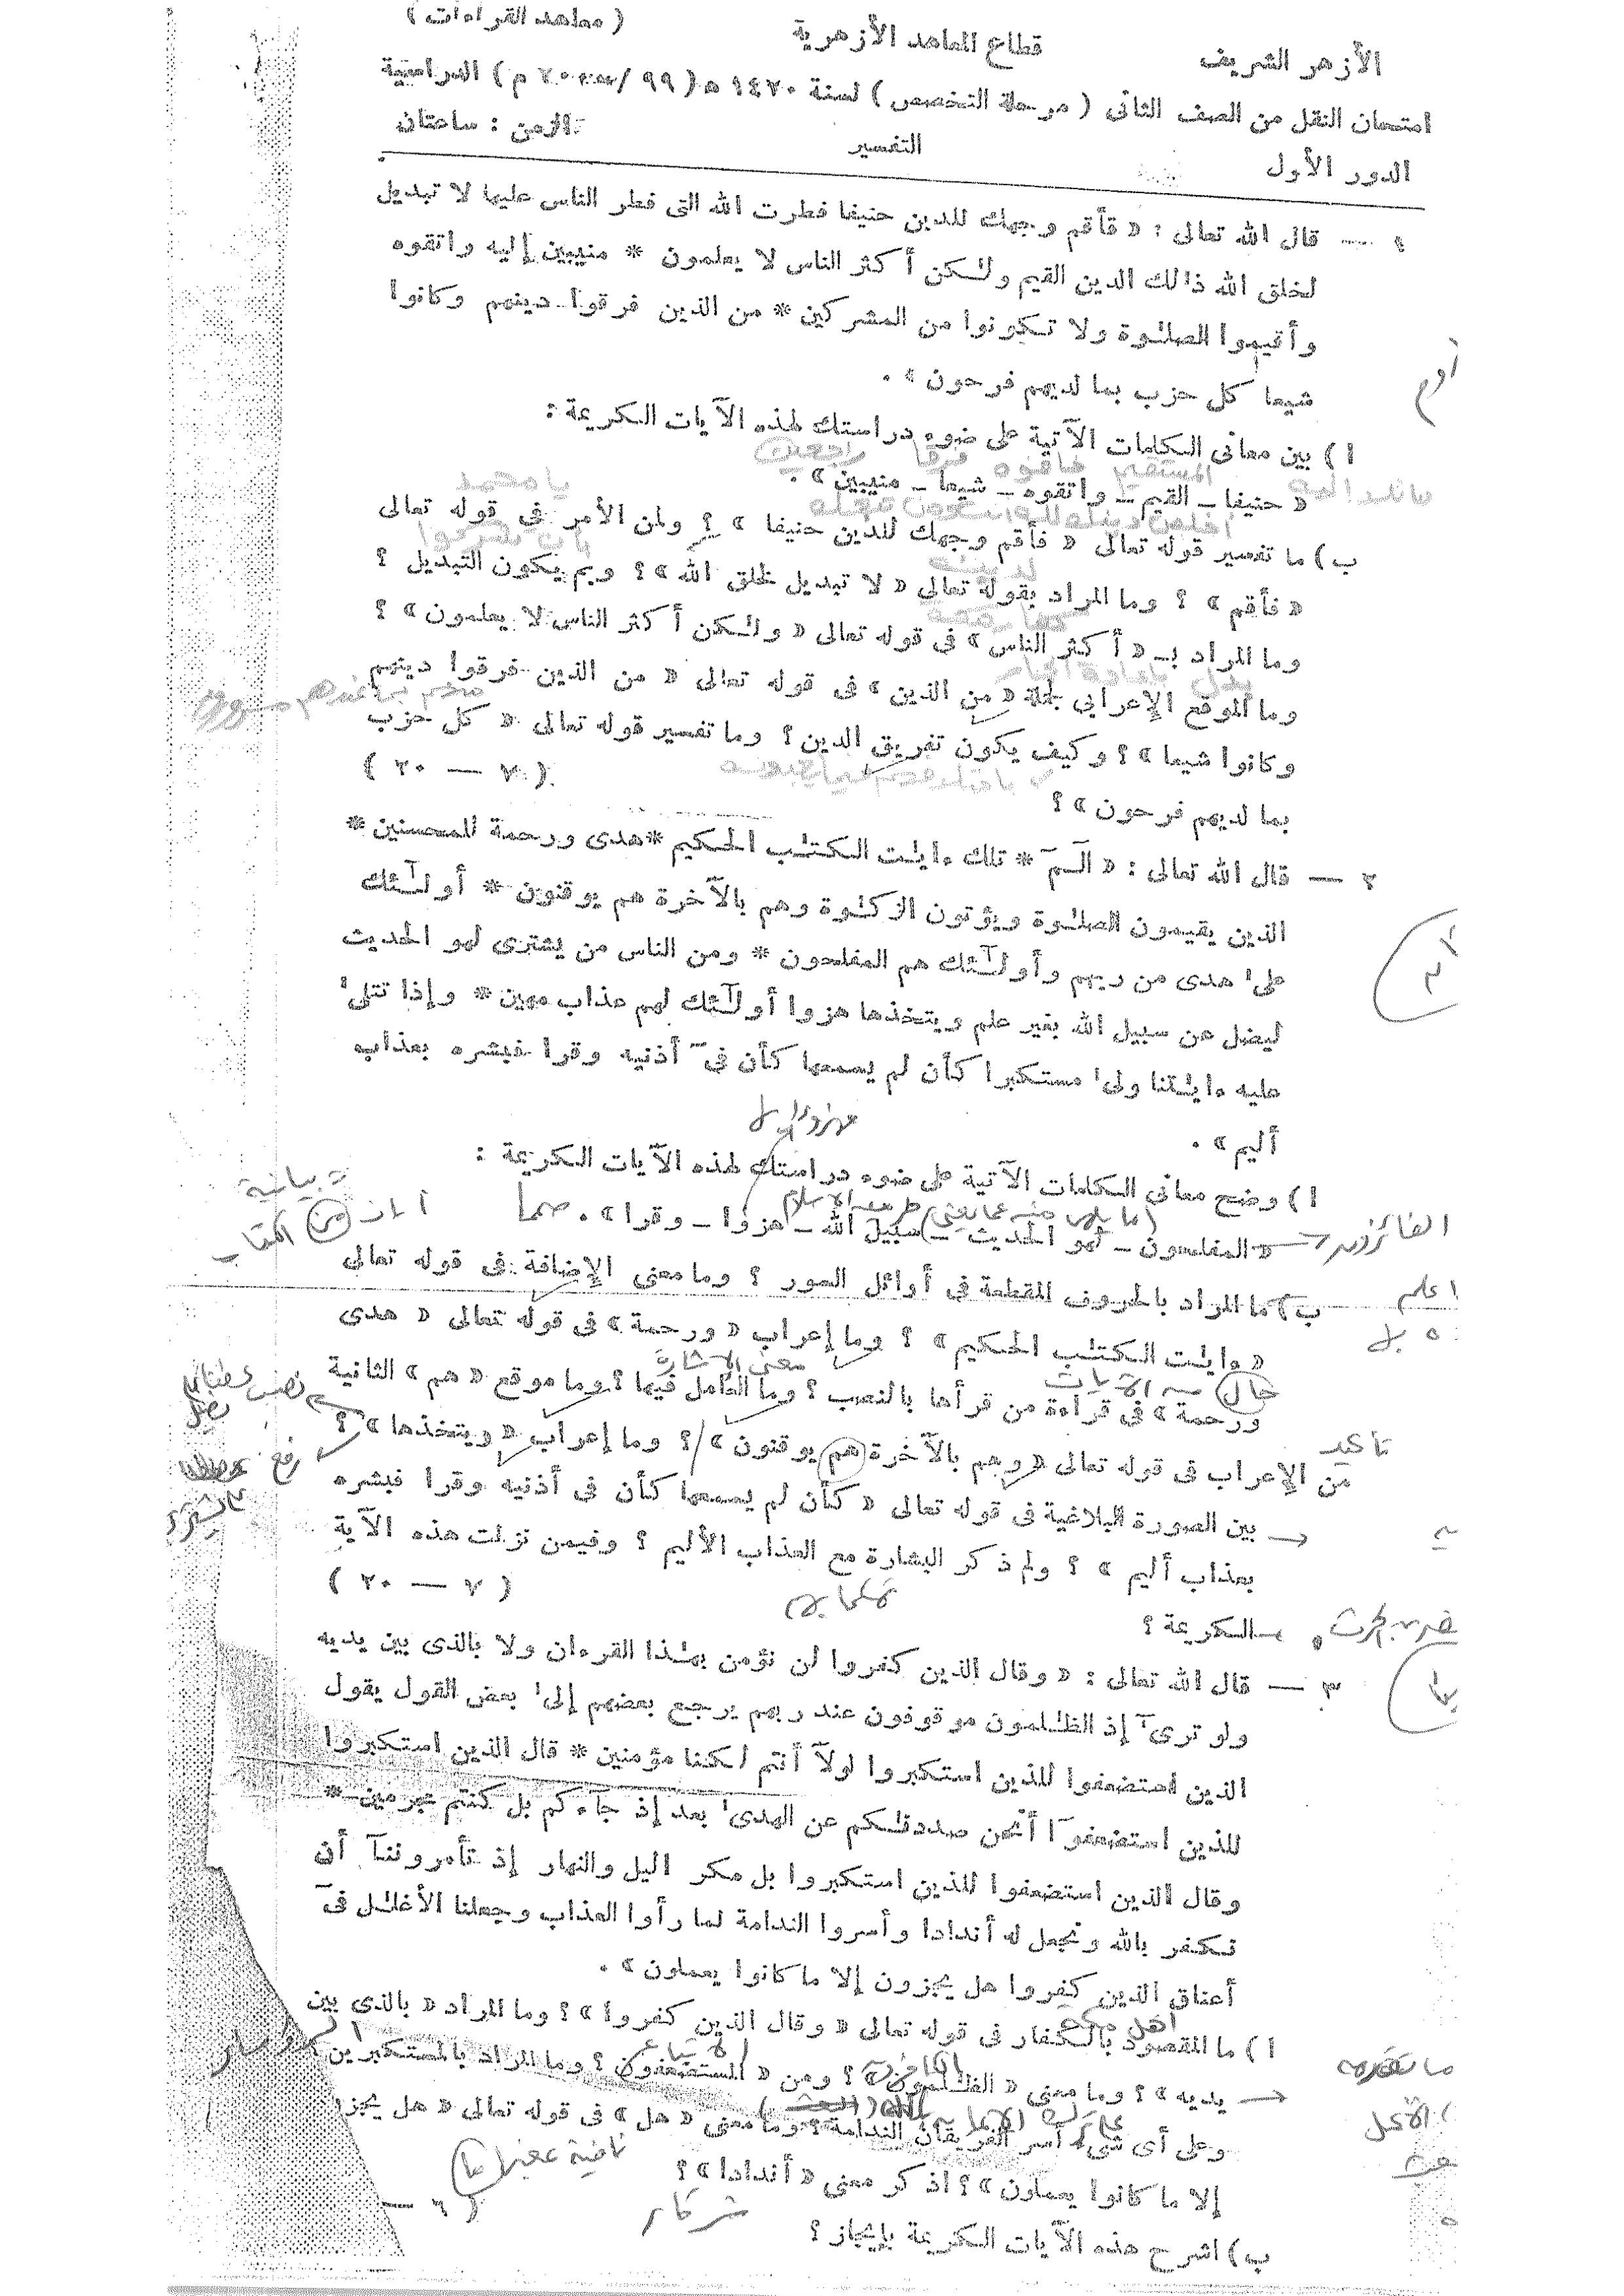 ( معاهد القراءات )
الأزهر الشريف قطاع المعاهد الأزهرية
امتحان النقل من الصف الثانى ( مرحلة التخصص ) لسنة ١٤٢٠ ه ( ٩٩ / ٢٠٠٠ م ) الدراسية
الدور الأول التفسير الزمن : ساعتان
١ — قال الله تعالى : « فأقم وجهك للدين حنيفا فطرت الله التى فطر الناس عليها لا تبديل
لخلق الله ذٰلك الدين القيم ولٰكن أكثر الناس لا يعلمون * منيبين إليه واتقوه
وأقيموا الصلٰوة ولا تكونوا من المشركين * من الذين فرقوا دينهم وكانوا
شيعا كل حزب بما لديهم فرحون » .
روم
ا ) بين معانى الكلمات الآتية على ضوء دراستك لهذه الآيات الكريمة :
المستقيم خافوه فرقا راجعين
« حنيفا – القيم – واتقوه – شيعا – منيبين » .
ب ) ما تفسير قوله تعالى « فأقم وجهك للدين حنيفا » ؟ ولمن الأمر فى قوله تعالى
« فأقم » ؟ وما المراد بقوله تعالى « لا تبديل لخلق الله » ؟ وبم يكون التبديل ؟
وما المراد بـ « أكثر الناس » فى قوله تعالى « ولٰكن أكثر الناس لا يعلمون » ؟
وما الموقع الإعرابي لجملة « من الذين » فى قوله تعالى « من الذين فرقوا دينهم
وكانوا شيعا » ؟ وكيف يكون تفريق الدين ؟ وما تفسير قوله تعالى « كل حزب
بما لديهم فرحون » ؟ ( ٧ — ٢٠ )
٢ — قال الله تعالى : « الٓمٓ * تلك ءايٰت الكتٰب الحكيم * هدى ورحمة للمحسنين *
الذين يقيمون الصلٰوة ويؤتون الزكٰوة وهم بالآخرة هم يوقنون * أولٰٓئك
على هدى من ربهم وأولٰٓئك هم المفلحون * ومن الناس من يشترى لهو الحديث
ليضل عن سبيل الله بغير علم ويتخذها هزوا أولٰٓئك لهم عذاب مهين * وإذا تتلى
عليه ءايٰتنا ولى مستكبرا كأن لم يسمعها كأن فىٓ أذنيه وقرا فبشره بعذاب
أليم » .
ا ) وضح معانى الكلمات الآتية على ضوء دراستك لهذه الآيات الكريمة :
« المفلحون – لهو الحديث – سبيل الله – هزوا – وقرا » . صمما
ب ) ما المراد بالحروف المقطعة فى أوائل السور ؟ وما معنى الإضافة فى قوله تعالى
« ءايٰت الكتٰب الحكيم » ؟ وما إعراب « ورحمة » فى قوله تعالى « هدى
معنى الإشارة
حال من الآيات
ورحمة » فى قراءة من قرأها بالنصب ؟ وما العامل فيها ؟ وما موقع « هم » الثانية
تأكيد
من الإعراب فى قوله تعالى « وهم بالآخرة هم يوقنون » ؟ وما إعراب « ويتخذها » ؟
بين الصورة البلاغية فى قوله تعالى « كأن لم يسمعها كأن فى أذنيه وقرا فبشره
بعذاب أليم » ؟ ولم ذكر البشارة مع العذاب الأليم ؟ وفيمن نزلت هذه الآية
الكريمة ؟ ( ٧ — ٢٠ )
٣ — قال الله تعالى : « وقال الذين كفروا لن نؤمن بهٰذا القرءان ولا بالذى بين يديه
ولو ترىٓ إذ الظٰلمون موقوفون عند ربهم يرجع بعضهم إلى بعض القول يقول
الذين استضعفوا للذين استكبروا لولآ أنتم لكنا مؤمنين * قال الذين استكبروا
للذين استضعفوٓا أنحن صددنٰكم عن الهدى بعد إذ جآءكم بل كنتم مجرمين *
وقال الذين استضعفوا للذين استكبروا بل مكر اليل والنهار إذ تأمروننآ أن
نكفر بالله ونجعل له أندادا وأسروا الندامة لما رأوا العذاب وجعلنا الأغلٰل فىٓ
أعناق الذين كفروا هل يجزون إلا ما كانوا يعملون » .
ا ) ما المقصود بالكفار فى قوله تعالى « وقال الذين كفروا » ؟ وما المراد « بالذى بين
أهل مكة
يديه » ؟ وما معنى « الظٰلمون » ؟ ومن « المستضعفون ؟ وما المراد بالمستكبرين
وعلى أى شىء أسر الفريقان الندامة ؟ وما معنى « هل » فى قوله تعالى « هل يجزو
إلا ما كانوا يعملون » ؟ اذكر معنى « أندادا » ؟
نافية بمعنى ما
شركاء
ب ) اشرح هذه الآيات الكريمة بإيجاز ؟ ( ٦ —